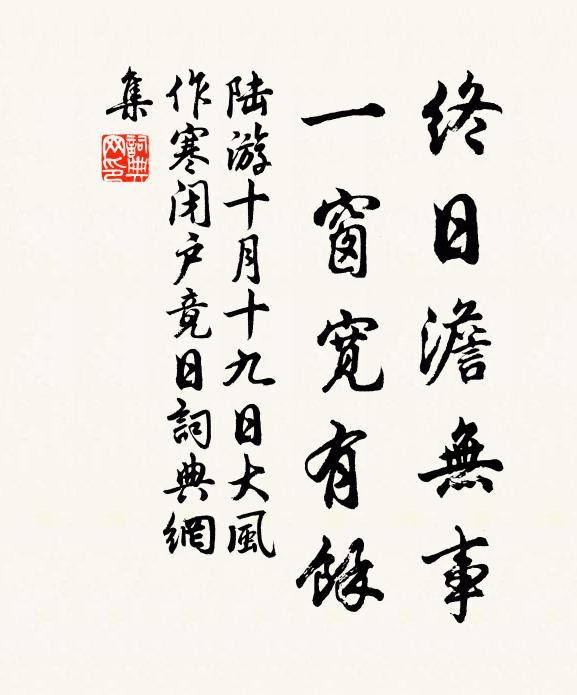 終日澹無事
一窗寬有餘
陆游十月十九日大風
作寒闭户竟日詞典網
集
詞典
网印